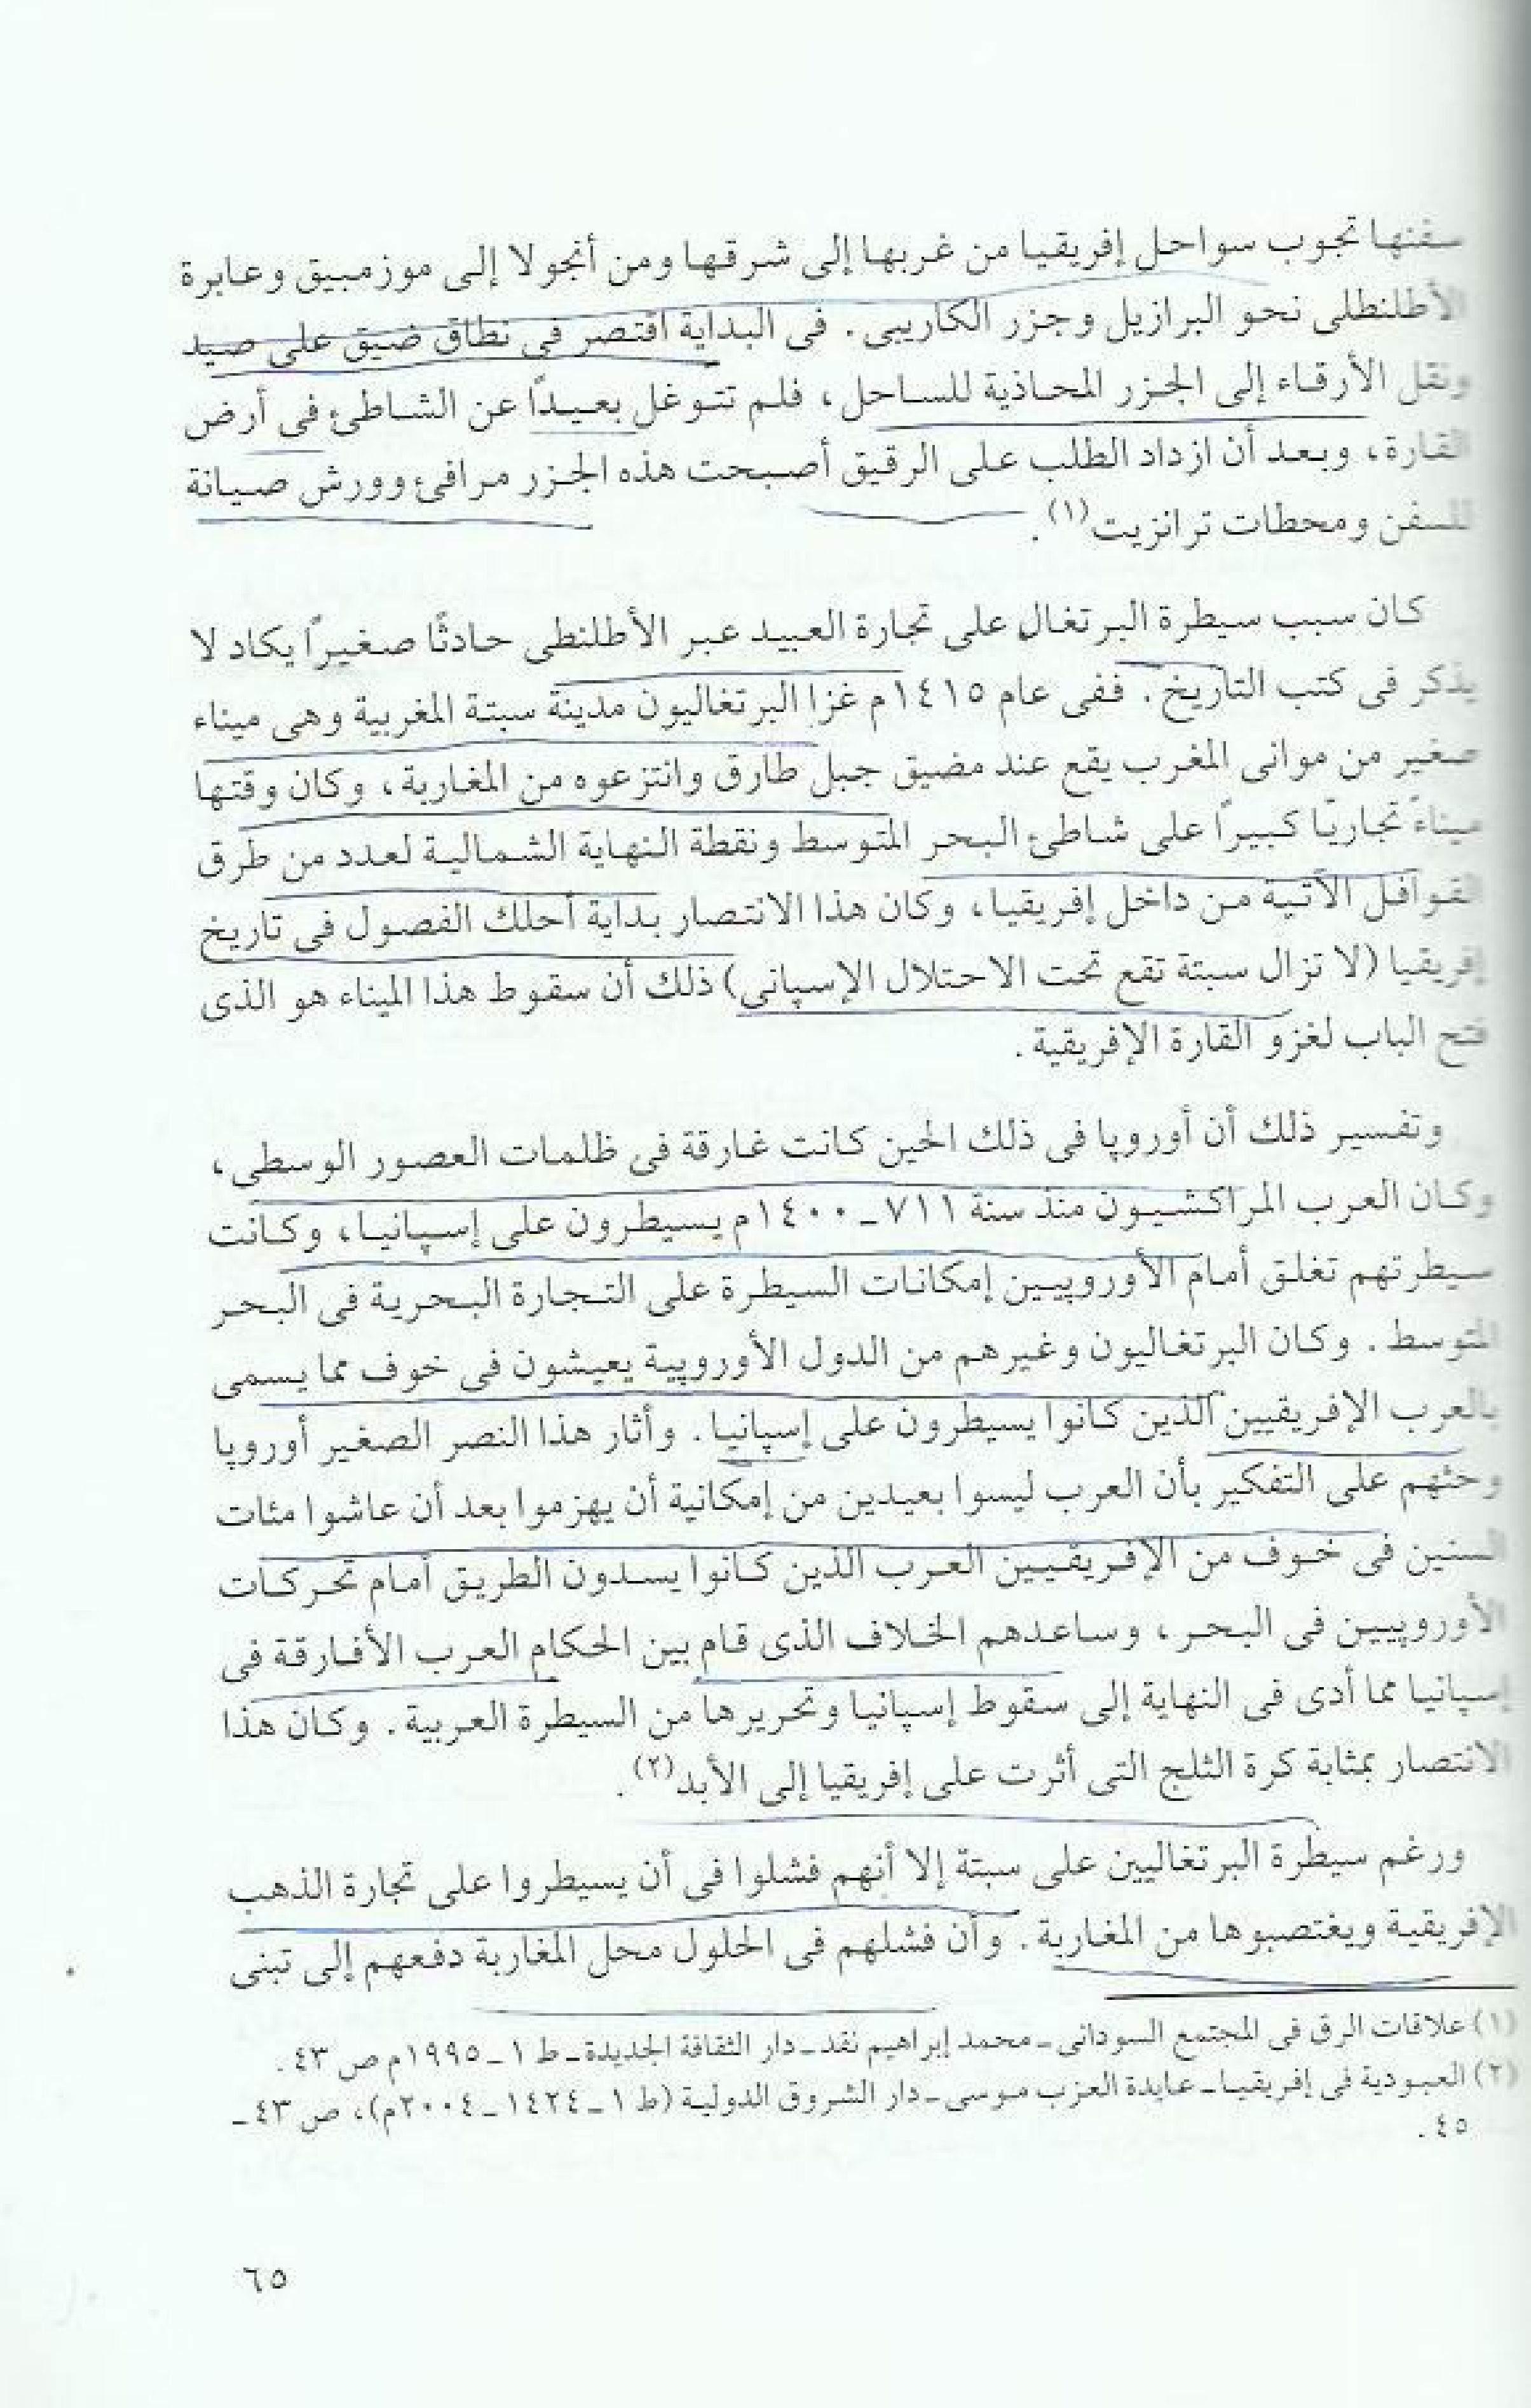 سفنها تجوب سواحل إفريقيا من غربها إلى شرقها ومن أنجولا إلى موزمبيق وعابرة
الأطلنطلى نحو البرازيل وجزر الكاريبى. فى البداية اقتصر فى نطاق ضيق على صيد
ونقل الأرقاء إلى الجزر المحاذية للساحل، فلم تتوغل بعيدًا عن الشاطئ فى أرض
القارة، وبعد أن ازداد الطلب على الرقيق أصبحت هذه الجزر مرافئ وورش صيانة
للسفن ومحطات ترانزيت(١).
كان سبب سيطرة البرتغال على تجارة العبيد عبر الأطلنطى حادثًا صغيرًا يكاد لا
يذكر فى كتب التاريخ. ففى عام ١٤١٥م غزا البرتغاليون مدينة سبتة المغربية وهى ميناء
صغير من موانى المغرب يقع عند مضيق جبل طارق وانتزعوه من المغاربة، وكان وقتها
ميناءً تجاريًا كبيرًا على شاطئ البحر المتوسط ونقطة النهاية الشمالية لعدد من طرق
القوافل الآتية من داخل إفريقيا، وكان هذا الانتصار بداية أحلك الفصول فى تاريخ
إفريقيا (لا تزال سبتة تقع تحت الاحتلال الإسپانى) ذلك أن سقوط هذا الميناء هو الذى
فتح الباب لغزو القارة الإفريقية.
وتفسير ذلك أن أوروپا فى ذلك الحين كانت غارقة فى ظلمات العصور الوسطى،
وكان العرب المراكشيون منذ سنة ٧١١ــ١٤٠٠م يسيطرون على إسپانيا، وكانت
سيطرتهم تغلق أمام الأوروپيين إمكانات السيطرة على التجارة البحرية فى البحر
المتوسط. وكان البرتغاليون وغيرهم من الدول الأوروپية يعيشون فى خوف مما يسمى
بالعرب الإفريقيين الذين كانوا يسيطرون على إسپانيا. وأثار هذا النصر الصغير أوروپا
وحثهم على التفكير بأن العرب ليسوا بعيدين من إمكانية أن يهزموا بعد أن عاشوا مئات
السنين فى خوف من الإفريقيين العرب الذين كانوا يسدون الطريق أمام تحركات
الأوروپيين فى البحر، وساعدهم الخلاف الذى قام بين الحكام العرب الأفارقة فى
إسپانيا مما أدى فى النهاية إلى سقوط إسپانيا وتحريرها من السيطرة العربية. وكان هذا
الانتصار بمثابة كرة الثلج التى أثرت على إفريقيا إلى الأبد(٢).
ورغم سيطرة البرتغاليين على سبتة إلا أنهم فشلوا فى أن يسيطروا على تجارة الذهب
الإفريقية ويغتصبوها من المغاربة. وأن فشلهم فى الحلول محل المغاربة دفعهم إلى تبنى
(١) علاقات الرق فى المجتمع السودانى ـ محمد إبراهيم نقد ـ دار الثقافة الجديدة ـ ط ١ ـ ١٩٩٥م ص ٤٣.
(٢) العبودية فى إفريقيا ـ عايدة العزب موسى ـ دار الشروق الدولية (ط ١ ـ ١٤٢٤ ـ ٢٠٠٤م)، ص ٤٣ ـ
٤٥.
٦٥